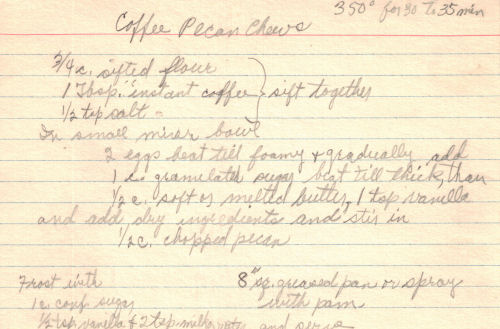 350° for 30 to 35 min
Coffee Pecan Chews
3/4 c. sifted flour
1 Tbsp. instant coffee } sift together
1/2 tsp salt
In small mixer bowl
2 eggs beat till foamy & gradually add
1 c. granulated sugar beat till thick, than
1/2 c. soft or melted butter, 1 tsp vanilla
and add dry ingredients and stir in
1/2 c. chopped pecan
Frost with
8" sq. greased pan or spray
1 c. conf. sugar
with pam
1/2 tsp vanilla & 2 tsp. milk and serve